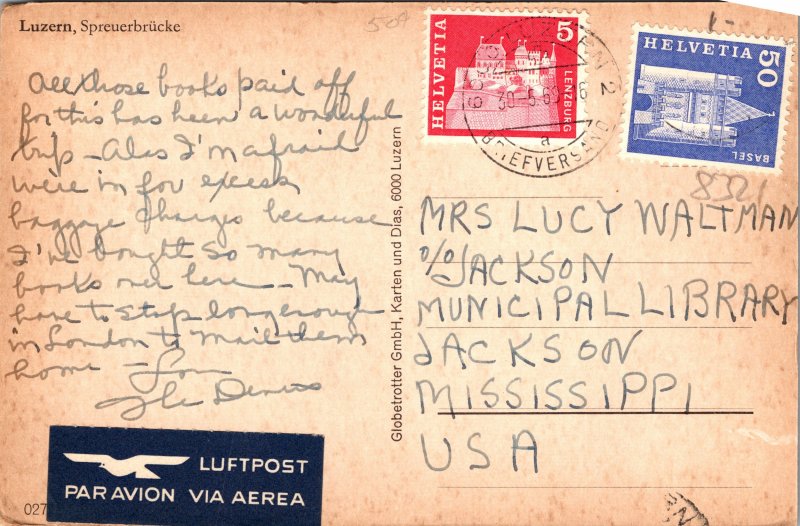 Luzern, Spreuerbrücke
All those books paid off
for this has been a wonderful
trip - Alas I'm afraid
we're in for excess
baggage charges because
I've bought so many
books over here - May
have to stop long enough
in London to mail them
home - Love
The
LUFTPOST
PAR AVION VIA AEREA
027
Globetrotter GmbH, Karten und Dias, 6000 Luzern
HELVETIA 5
LENZBURG
LUZERN 2
30-5-69
BRIEFVERSAND
HELVETIA 50
BASEL
8321
MRS LUCY WALTMAN
%JACKSON
MUNICIPAL LIBRARY
JACKSON
MISSISSIPPI
USA